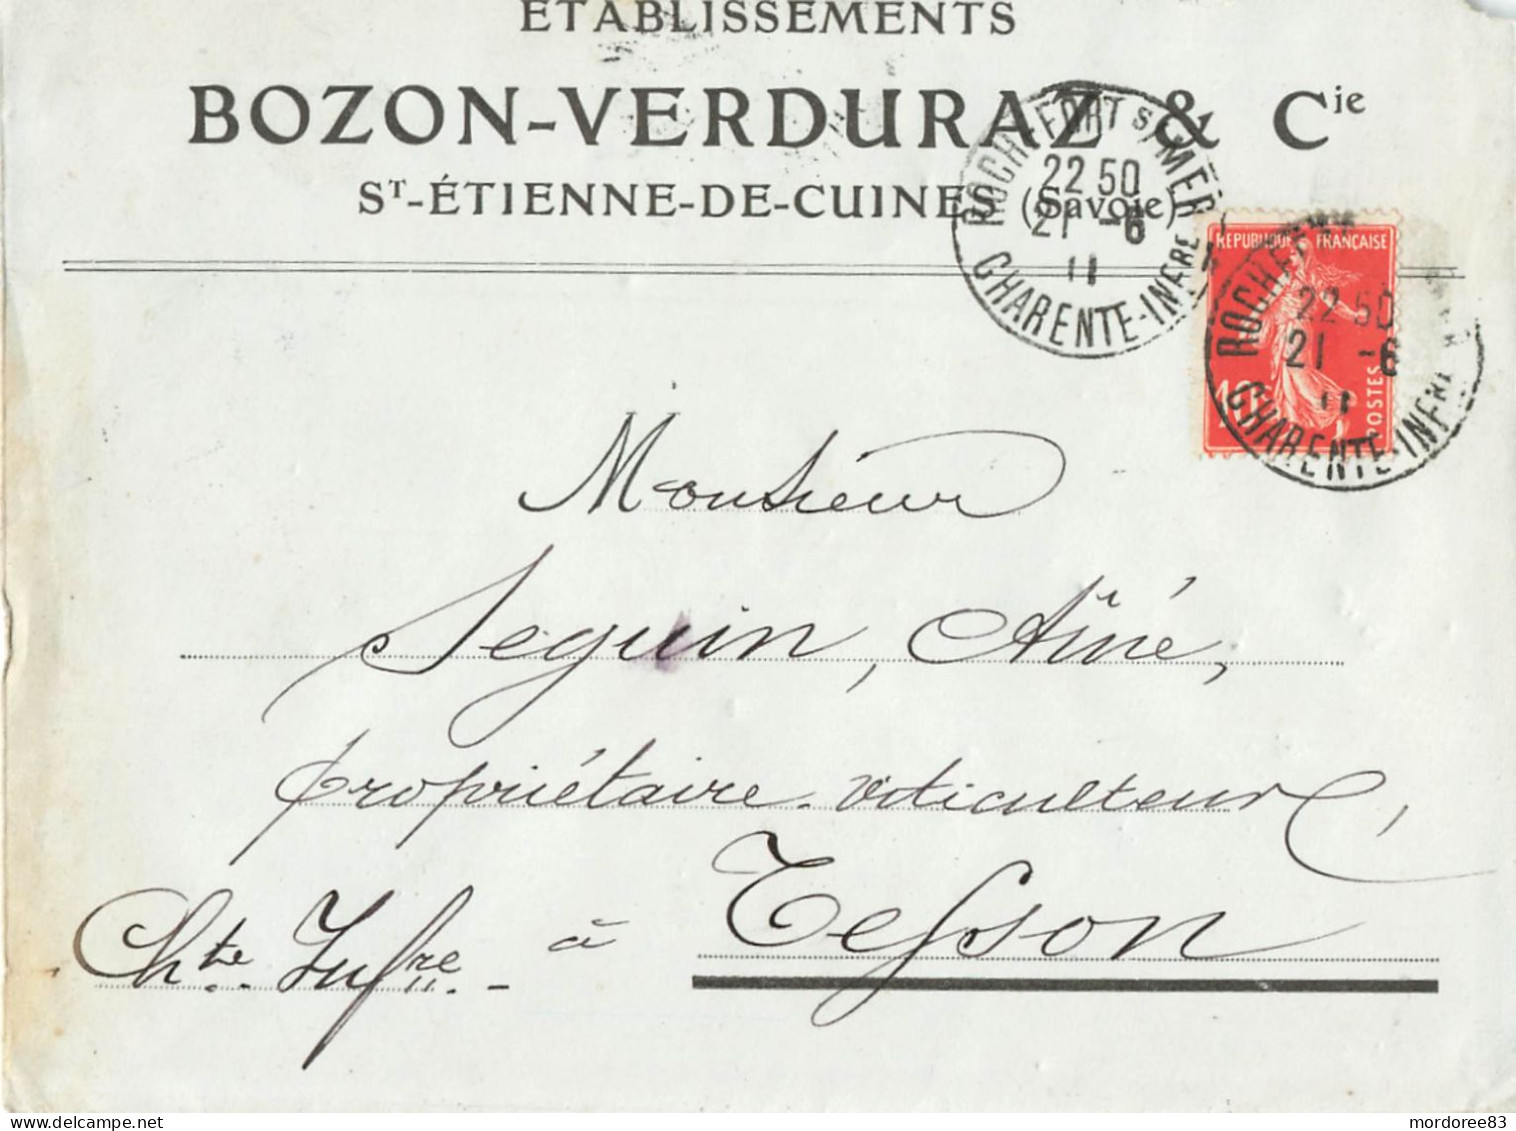 ÉTABLISSEMENTS
BOZON-VERDURAZ & Cie
ST-ÉTIENNE-DE-CUINES (Savoie)
ROCHEFORT S/ MER
22 50
21 -6
11
CHARENTE-INFRE
REPUBLIQUE FRANÇAISE
10
POSTES
ROCHEF
22 50
21 -6
11
CHARENTE-INFRE
Monsieur
Seguin, Aîné,
propriétaire-viticulteur,
à Tesson
Chte. Infre. -
mordoree83